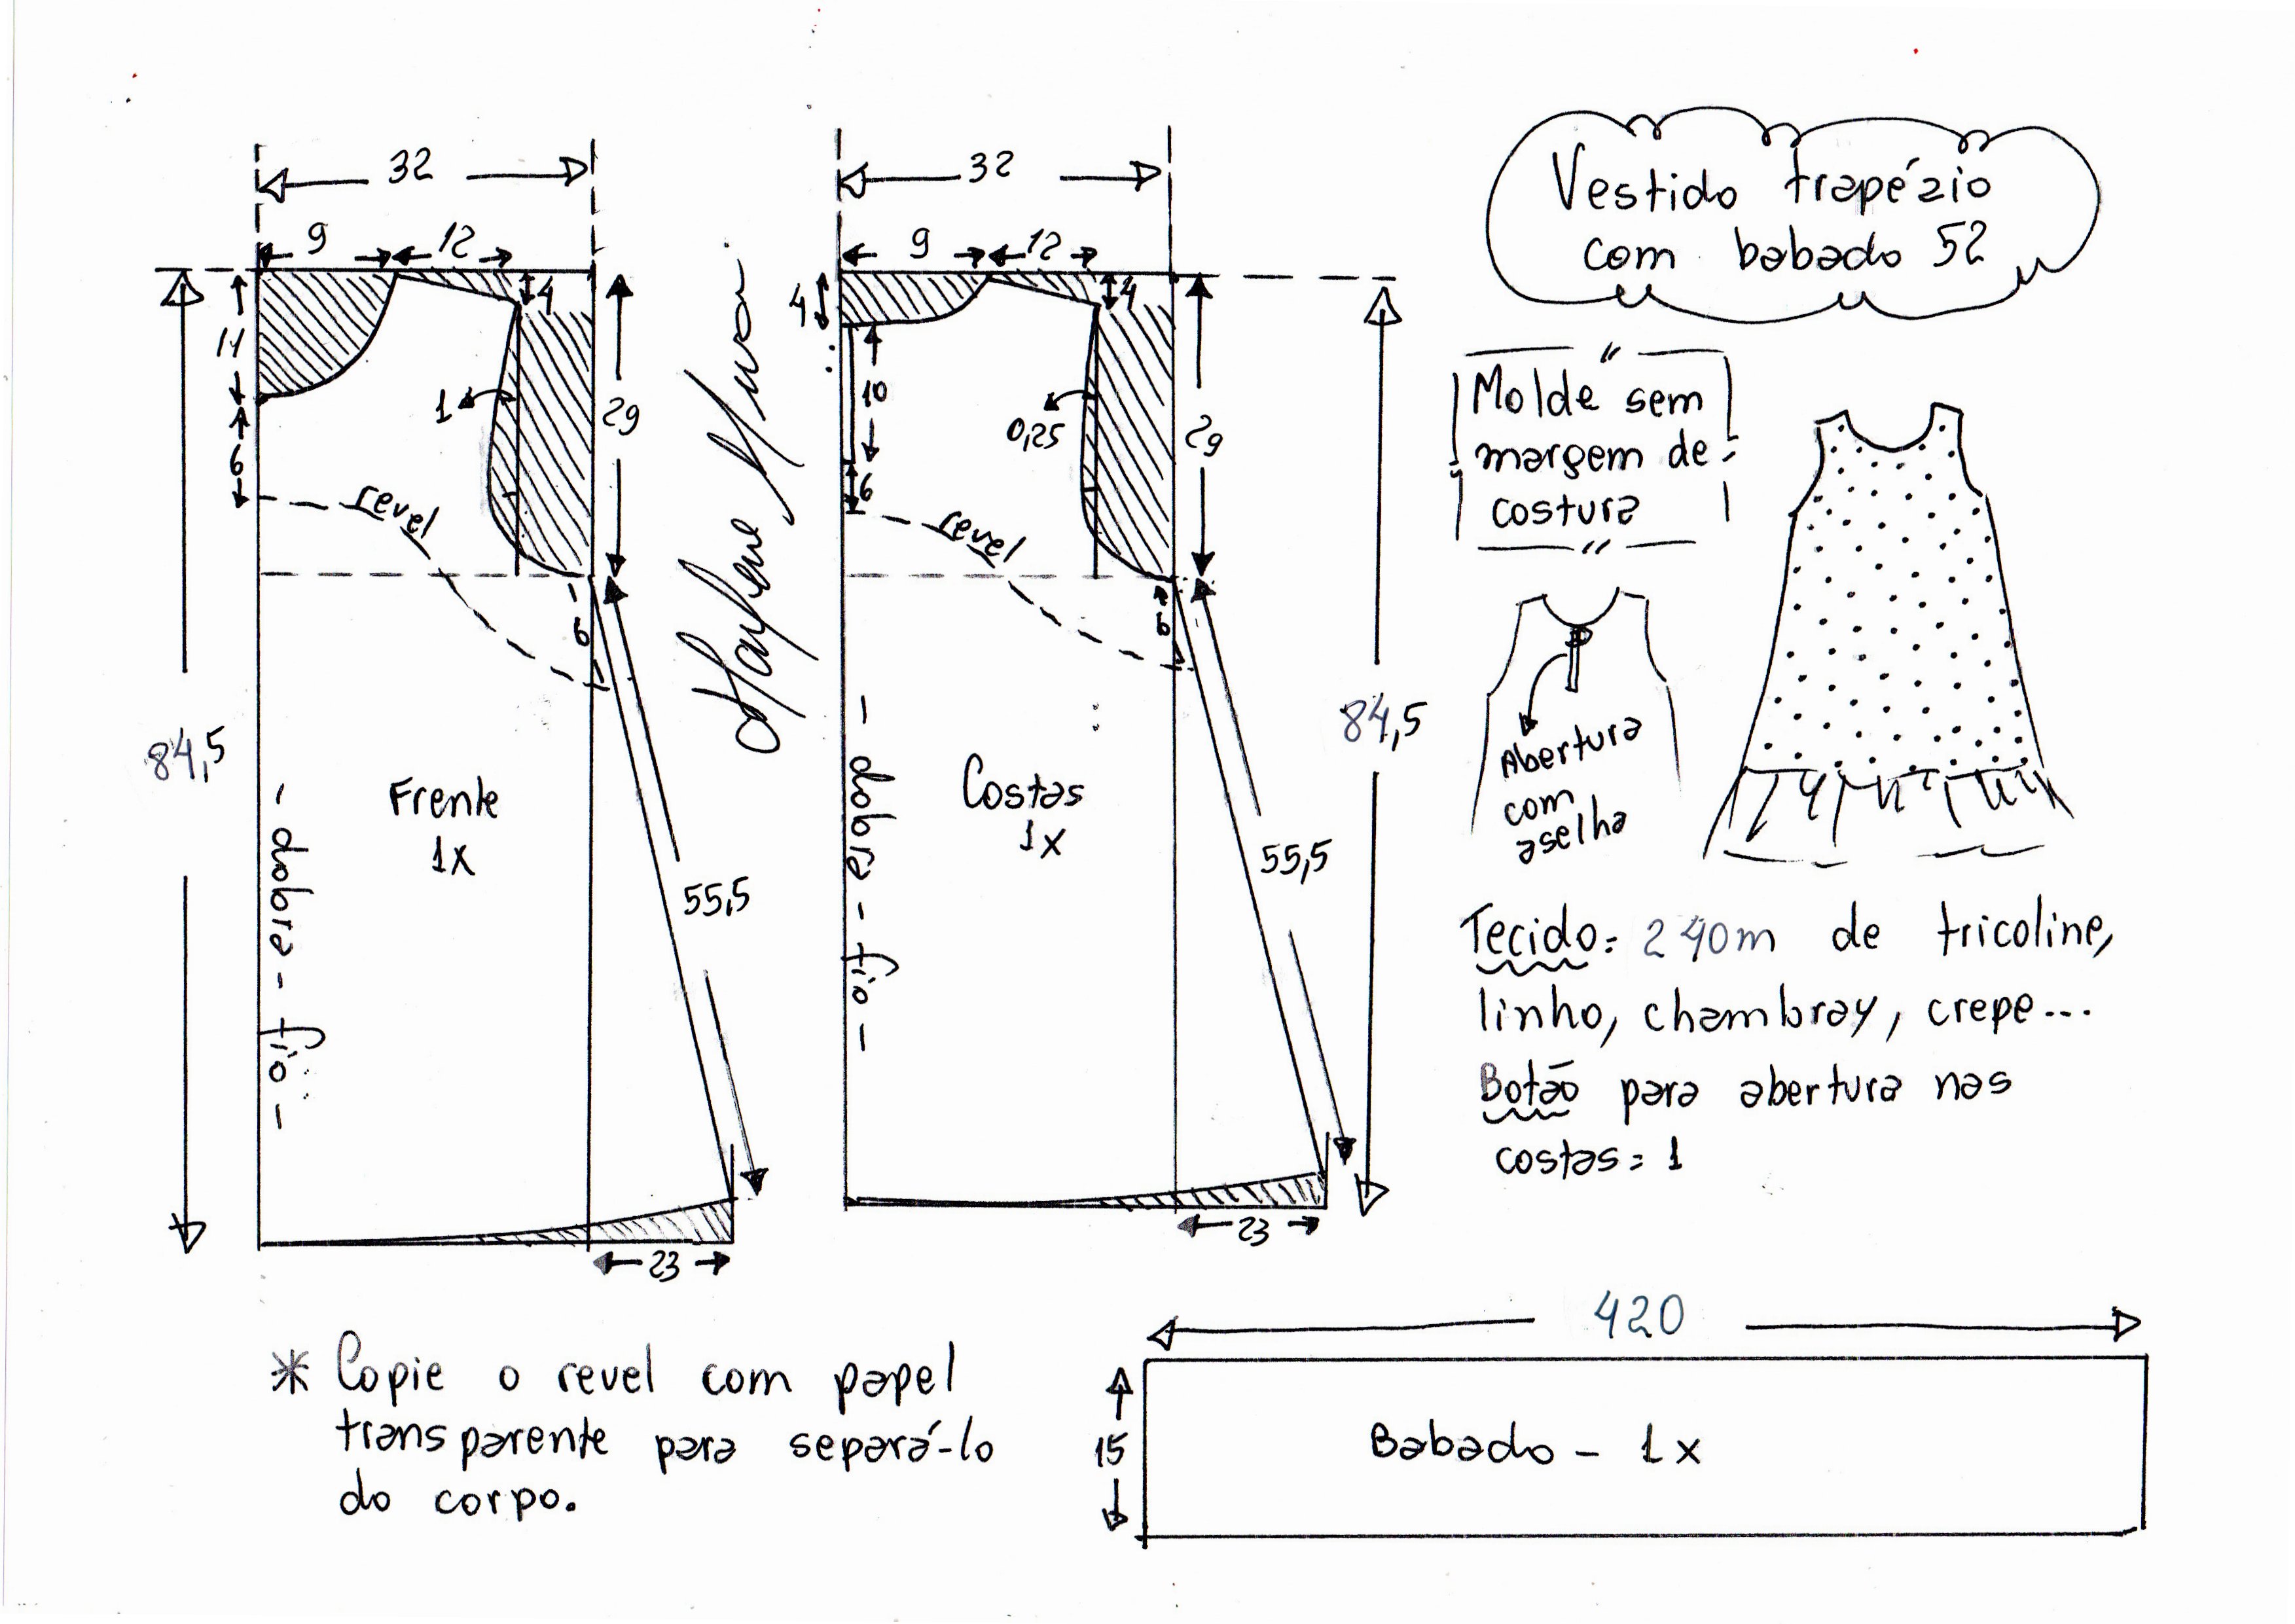 Vestido trapézio
com babado 52
Molde sem
margem de
costura
32
9
12
4
11
6
1
29
revel
6
84,5
Frente
1x
- fio - dobra -
55,5
23
32
9
12
4
4
10
6
0,25
29
revel
6
84,5
Costas
1x
- fio - dobra -
55,5
23
Marlene Mukai
Abertura
com
aselha
Tecido: 240m de tricoline,
linho, chambray, crepe...
Botão para abertura nas
costas = 1
* Copie o revel com papel
transparente para separá-lo
do corpo.
420
15
Babado - 1x